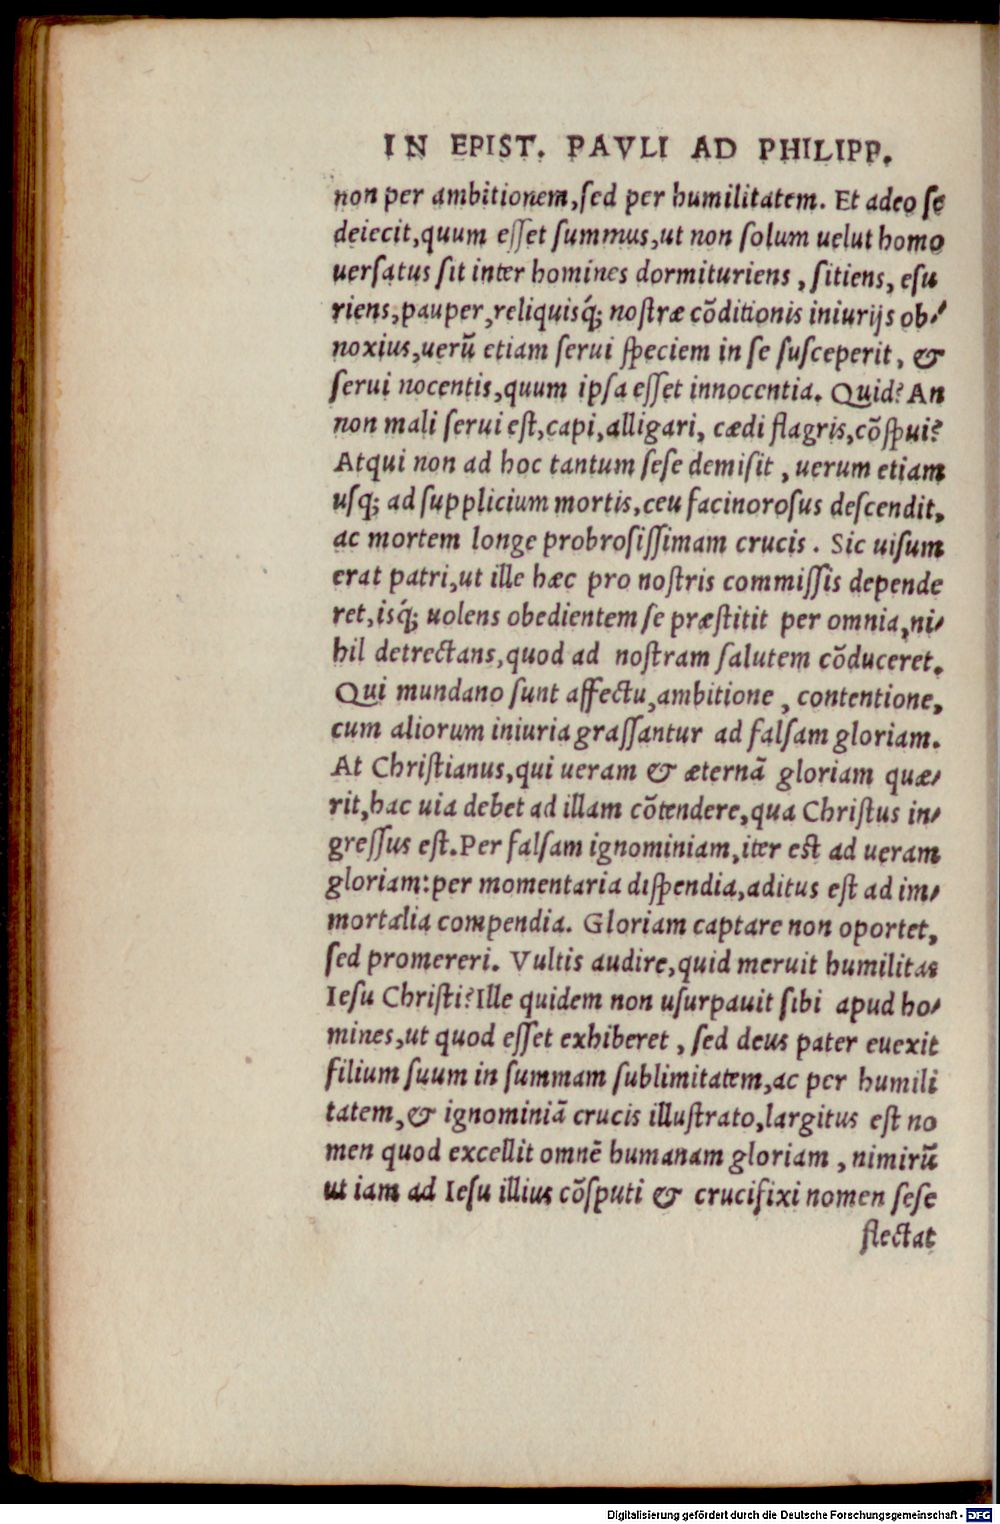 IN EPIST. PAVLI AD PHILIPP.
non per ambitionem,ſed per humilitatem. Et adeo ſe
deiecit,quum eſſet ſummus,ut non ſolum uelut homo
uerſatus ſit inter homines dormituriens, ſitiens, eſu
riens,pauper,reliquisq́; noſtræ cõditionis iniurijs ob⸗
noxius,uerũ etiam ſerui ſpeciem in ſe ſuſceperit, &
ſerui nocentis,quum ipſa eſſet innocentia. Quid? An
non mali ſerui eſt,capi,alligari, cædi flagris,cõſpui?
Atqui non ad hoc tantum ſeſe demiſit, uerum etiam
uſq; ad ſupplicium mortis,ceu facinoroſus deſcendit,
ac mortem longe probroſiſſimam crucis. Sic uiſum
erat patri,ut ille hæc pro noſtris commiſſis depende
ret,isq́; uolens obedientem ſe præſtitit per omnia,ni⸗
hil detrectans,quod ad noſtram ſalutem cõduceret.
Qui mundano ſunt affectu,ambitione, contentione,
cum aliorum iniuria graſſantur ad falſam gloriam.
At Chriſtianus,qui ueram & æternã gloriam quæ⸗
rit,hac uia debet ad illam cõtendere,qua Chriſtus in⸗
greſſus eſt.Per falſam ignominiam,iter est ad ueram
gloriam:per momentaria diſpendia,aditus eſt ad im⸗
mortalia compendia. Gloriam captare non oportet,
ſed promereri. Vultis audire,quid meruit humilitas
Ieſu Chriſti?Ille quidem non uſurpauit ſibi apud ho⸗
mines,ut quod eſſet exhiberet, ſed deus pater euexit
filium ſuum in ſummam ſublimitatem,ac per humili
tatem,& ignominiã crucis illuſtrato,largitus eſt no
men quod excellit omnẽ humanam gloriam, nimirũ
ut iam ad Ieſu illius cõſputi & crucifixi nomen ſeſe
flectat
Digitalisierung gefördert durch die Deutsche Forschungsgemeinschaft - DFG